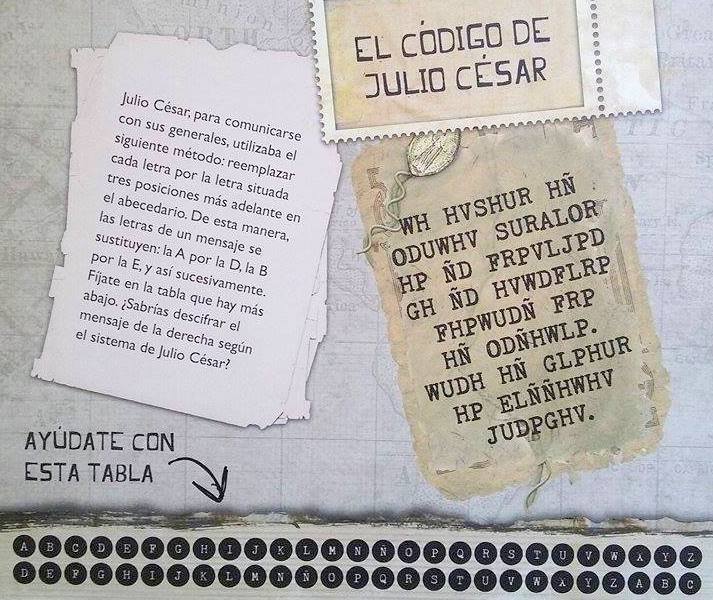 EL CÓDIGO DE
JULIO CÉSAR
Julio César, para comunicarse
con sus generales, utilizaba el
siguiente método: reemplazar
cada letra por la letra situada
tres posiciones más adelante en
el abecedario. De esta manera,
las letras de un mensaje se
sustituyen: la A por la D, la B
por la E, y así sucesivamente.
Fíjate en la tabla que hay más
abajo. ¿Sabrías descifrar el
mensaje de la derecha según
el sistema de Julio César?
WH HVSHUR HÑ
ODUWHV SURALOR
HP ÑD FRPVLJPD
GH ÑD HVWDFLRP
FHPWUDÑ FRP
HÑ ODÑHWLP.
WUDH HÑ GLPHUR
HP ELÑÑHWHV
JUDPGHV.
AYÚDATE CON
ESTA TABLA
A B C D E F G H I J K L M N Ñ O P Q R S T U V W X Y Z
D E F G H I J K L M N Ñ O P Q R S T U V W X Y Z A B C